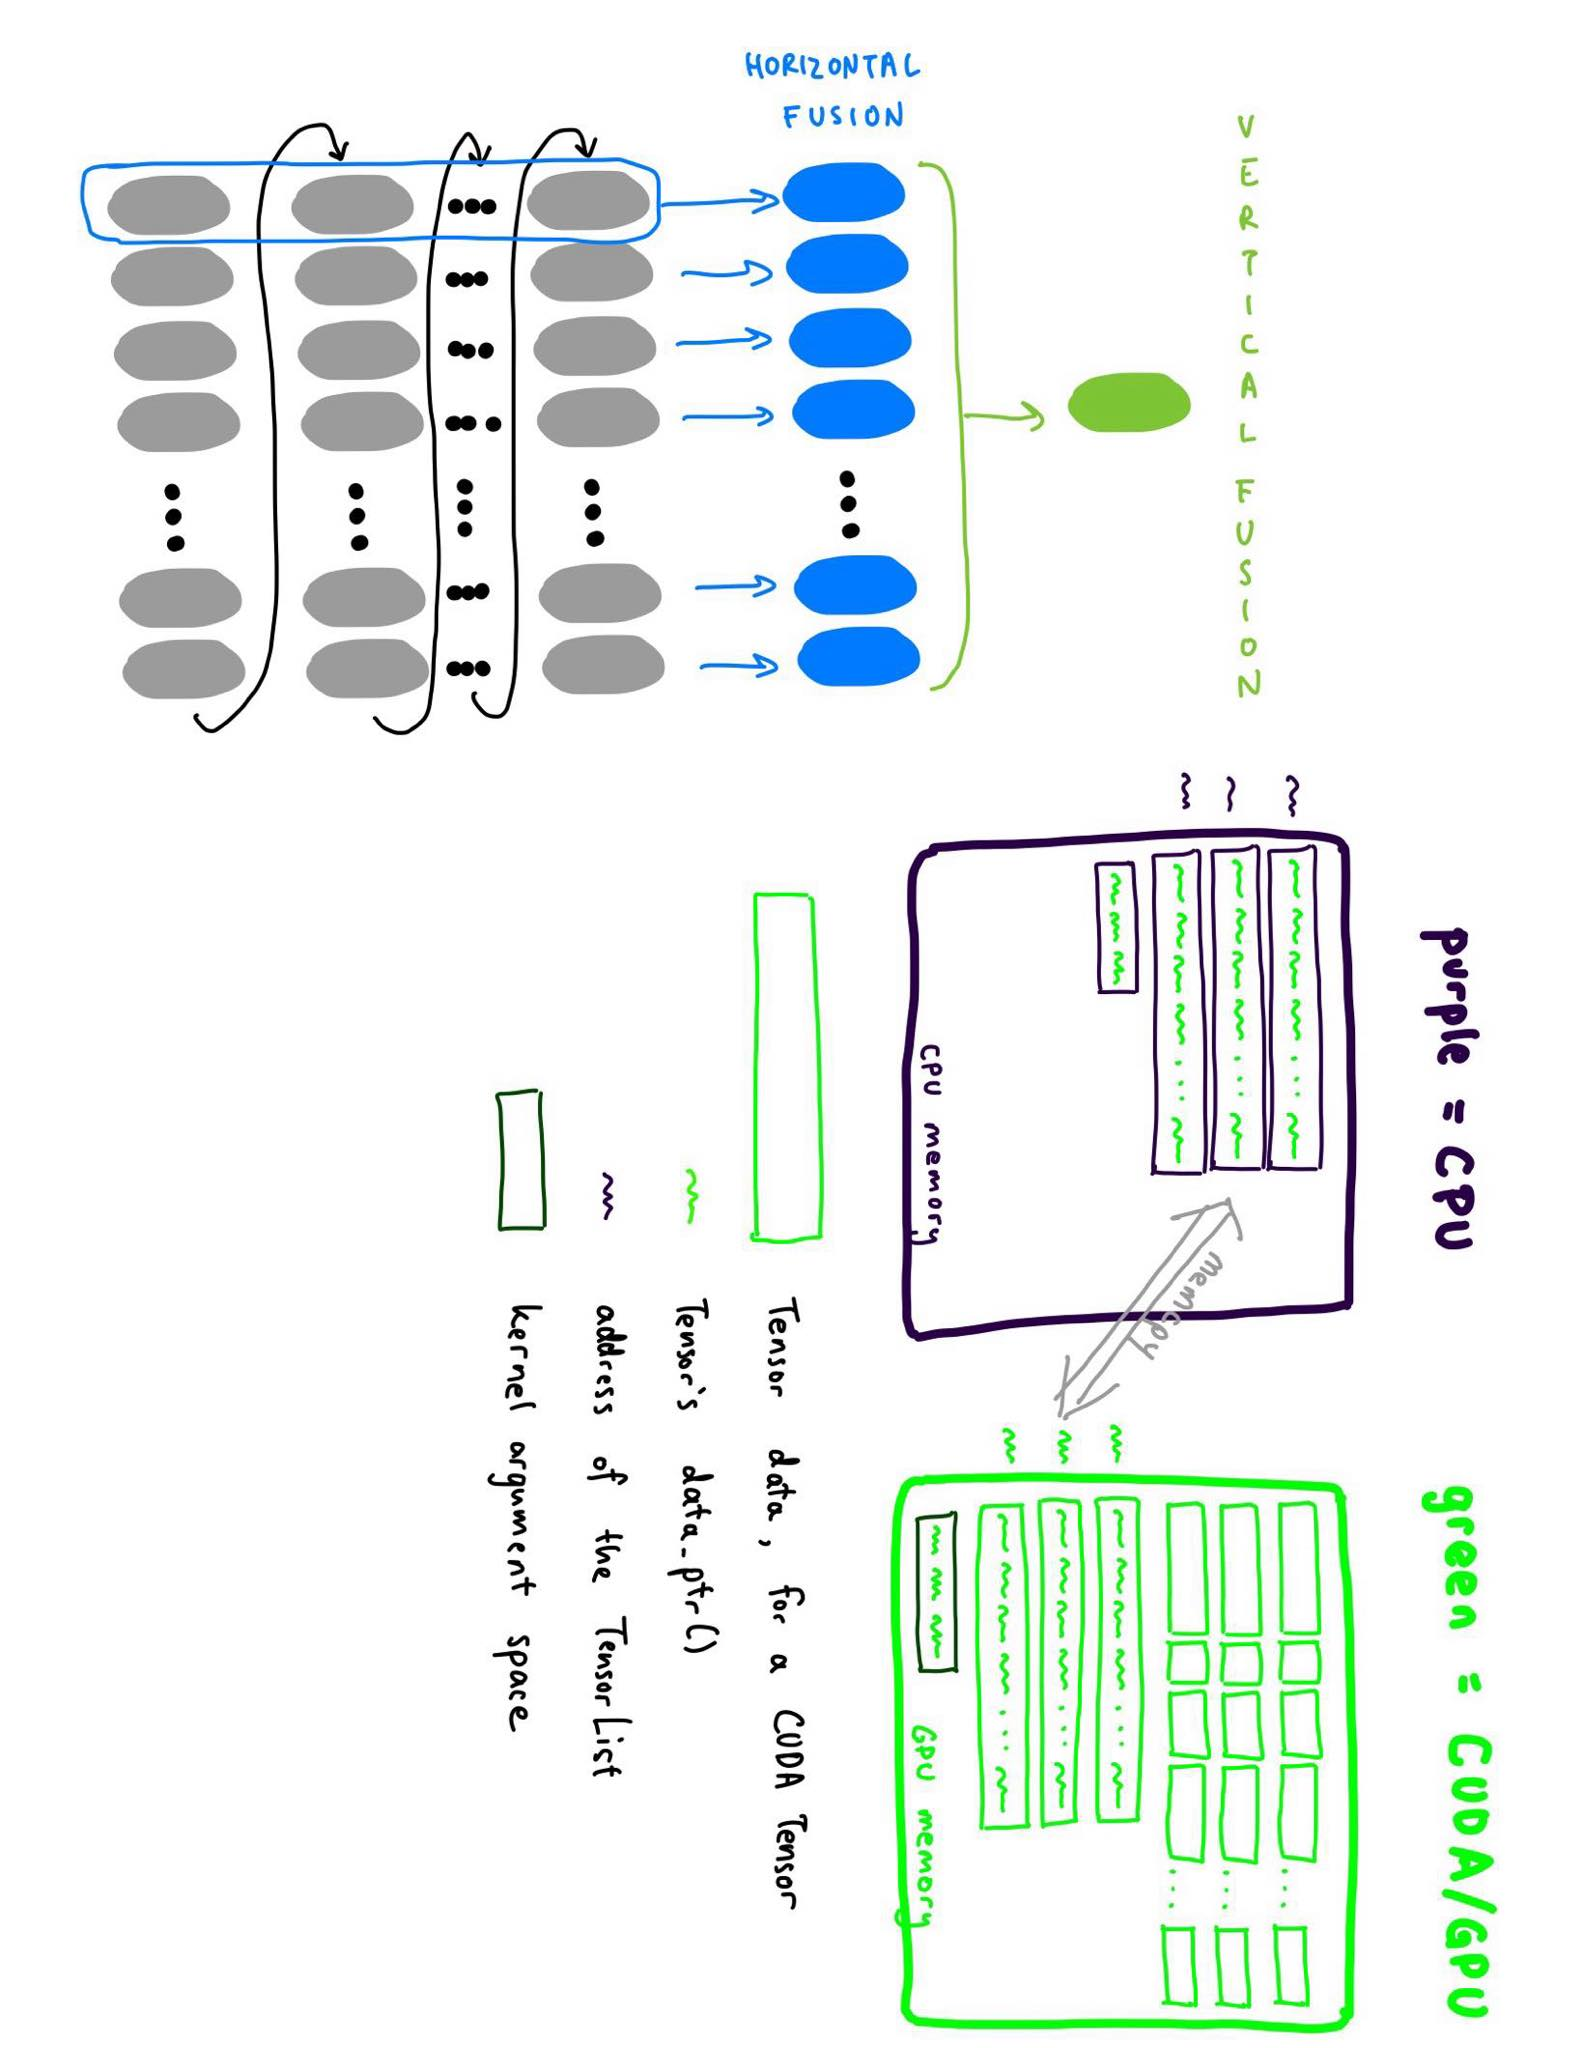 HORIZONTAL
FUSION
VERTICAL FUSION
purple = CPU
green = CUDA/GPU
CPU memory
memcpy
GPU memory
Tensor data, for a CUDA Tensor
Tensor's data_ptr()
address of the TensorList
kernel argument space